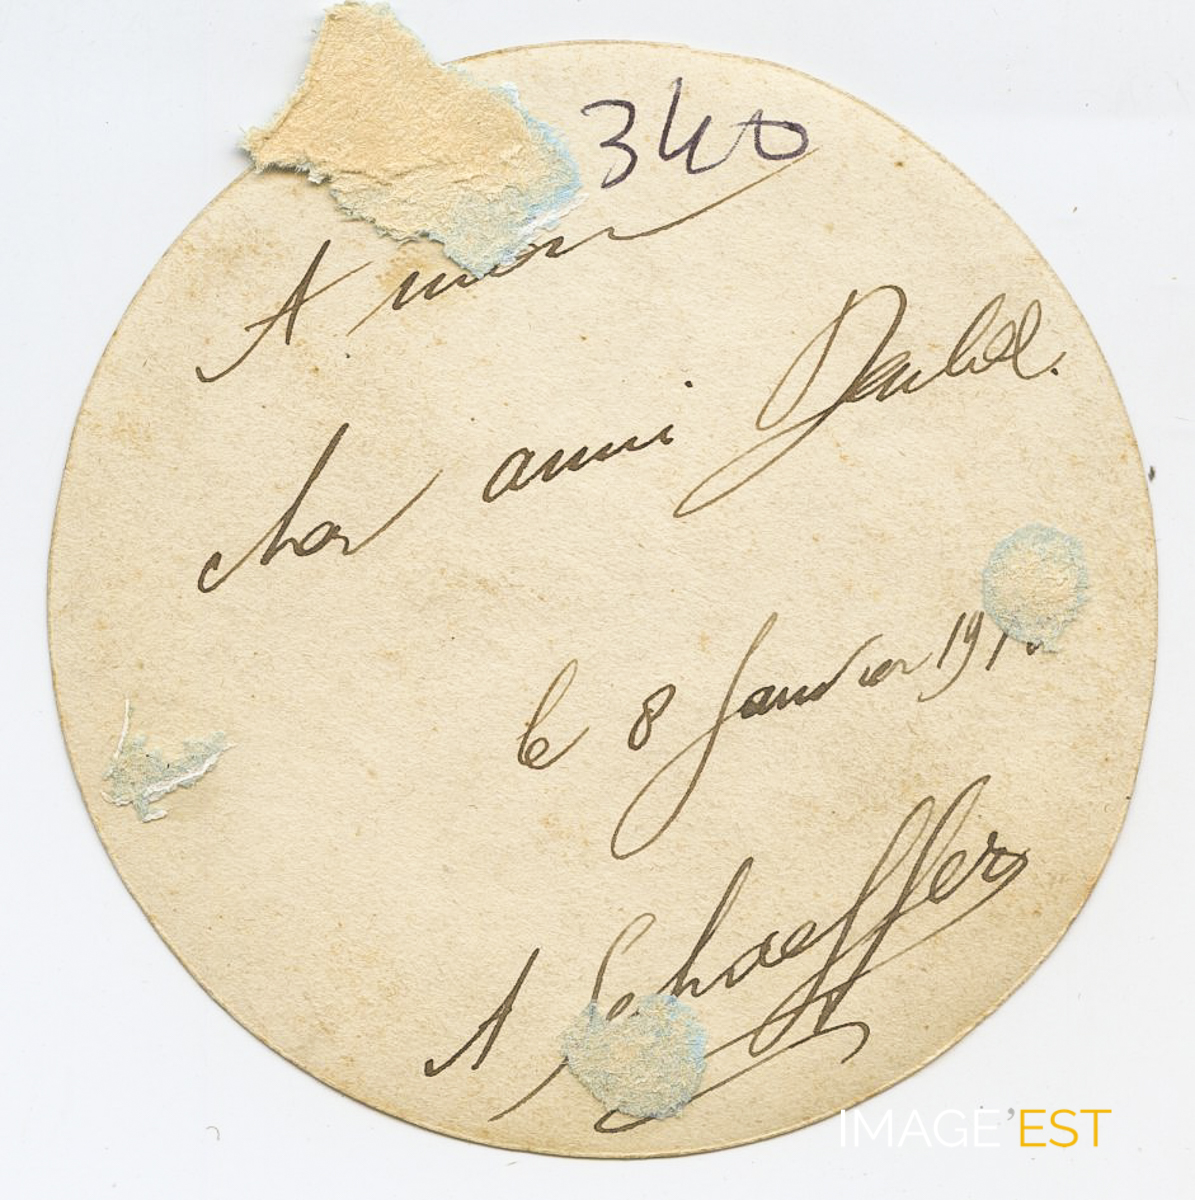 340
A mon
cher ami Daubel.
le 8 Janvier 191
A Schaeffer
IMAGE'EST